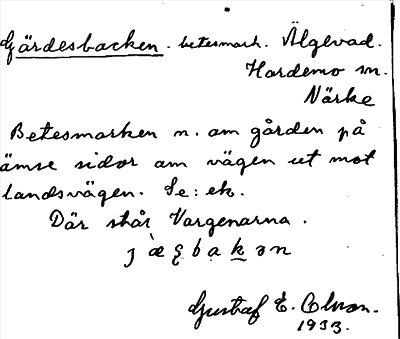 Gärdesbacken. betesmark. Älgevad.
Hardemo sn.
Närke
Betesmarken n. om gården på
ämse sidor om vägen ut mot
landsvägen. Se: ek.
Där står Vargenarna.
Gustaf E. Olsson.
1933.